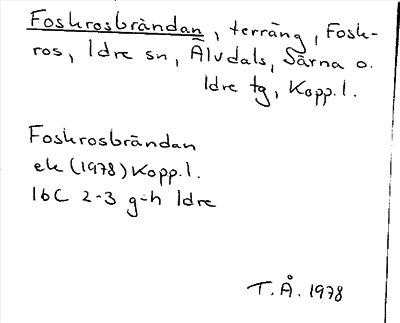 Foskrosbrändan, terräng, Fosk-
ros, Idre sn, Älvdals, Särna o.
Idre tg, Kopp.l.
Foskrosbrändan
ek (1978) Kopp.l.
16C 2-3 g-h Idre
T.Å. 1978